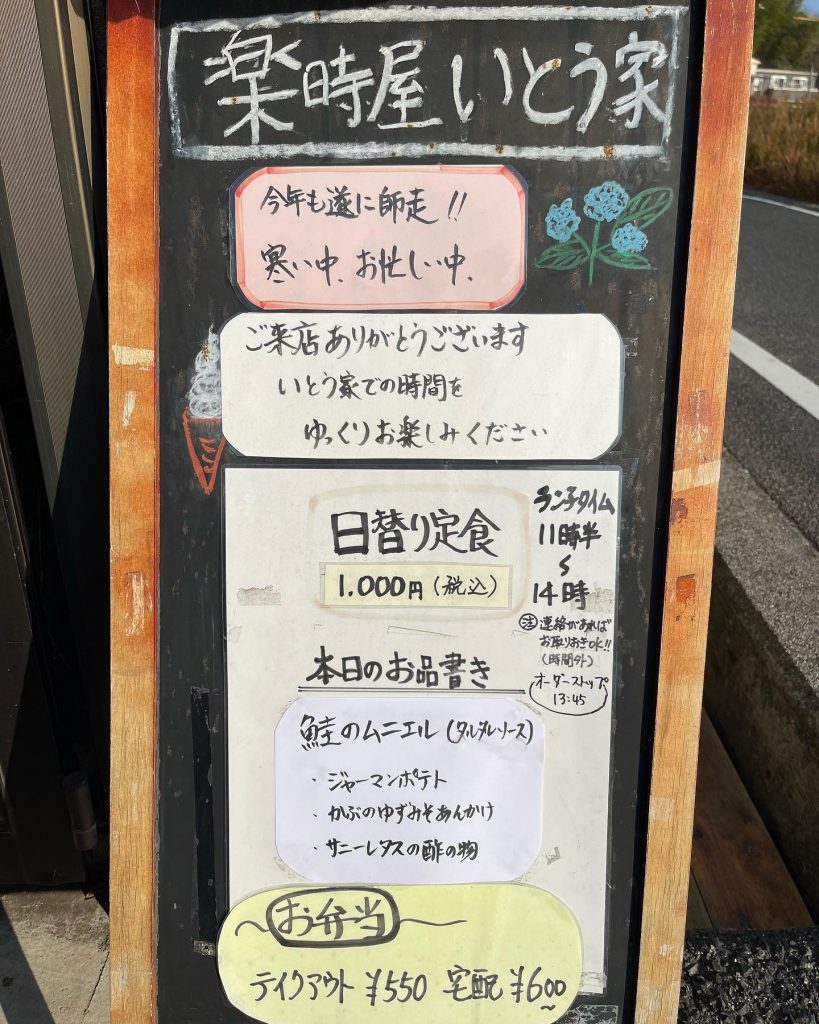 楽時屋 いとう家
今年も遂に師走!!
寒い中、お忙しい中、
ご来店ありがとうございます
いとう家での時間を
ゆっくりお楽しみください
日替り定食
1.000円(税込)
ランチタイム
11時半
〜
14時
㊟連絡があれば
お取りおきOK!!
(時間外)
オーダーストップ
13:45
本日のお品書き
鮭のムニエル(タルタルソース)
・ジャーマンポテト
・かぶのゆずみそあんかけ
・サニーレタスの酢の物
〜お弁当〜
テイクアウト ¥550 宅配 ¥600〜